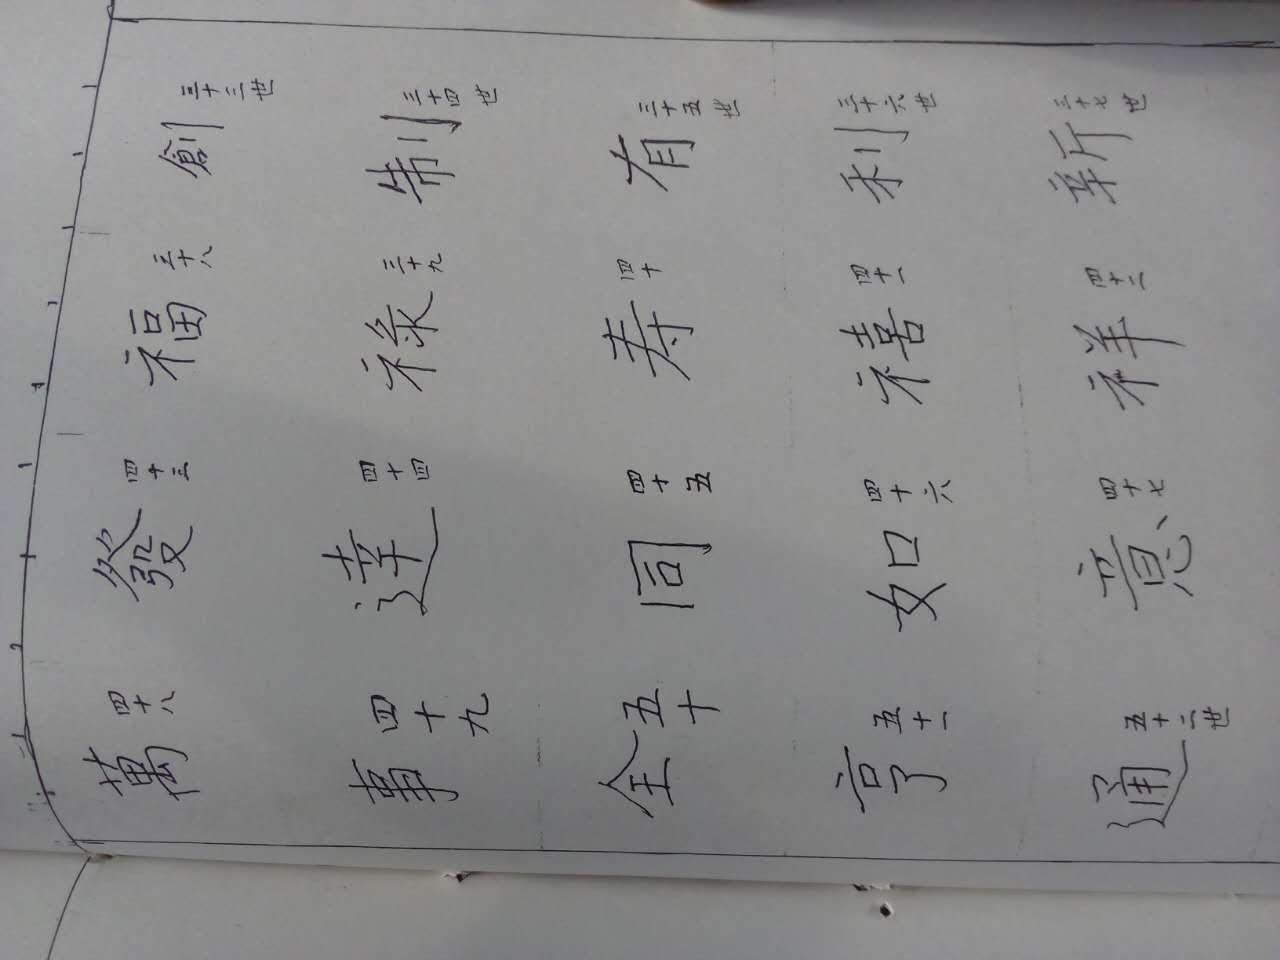 創三十三世 制三十四世 有三十五世 利三十六世 新三十七世
福三十八 祿三十九 寿四十 禧四十一 祥四十二
發四十三 達四十四 同四十五 如四十六 意四十七
萬四十八 事四十九 全五十 亨五十一 通五十二世